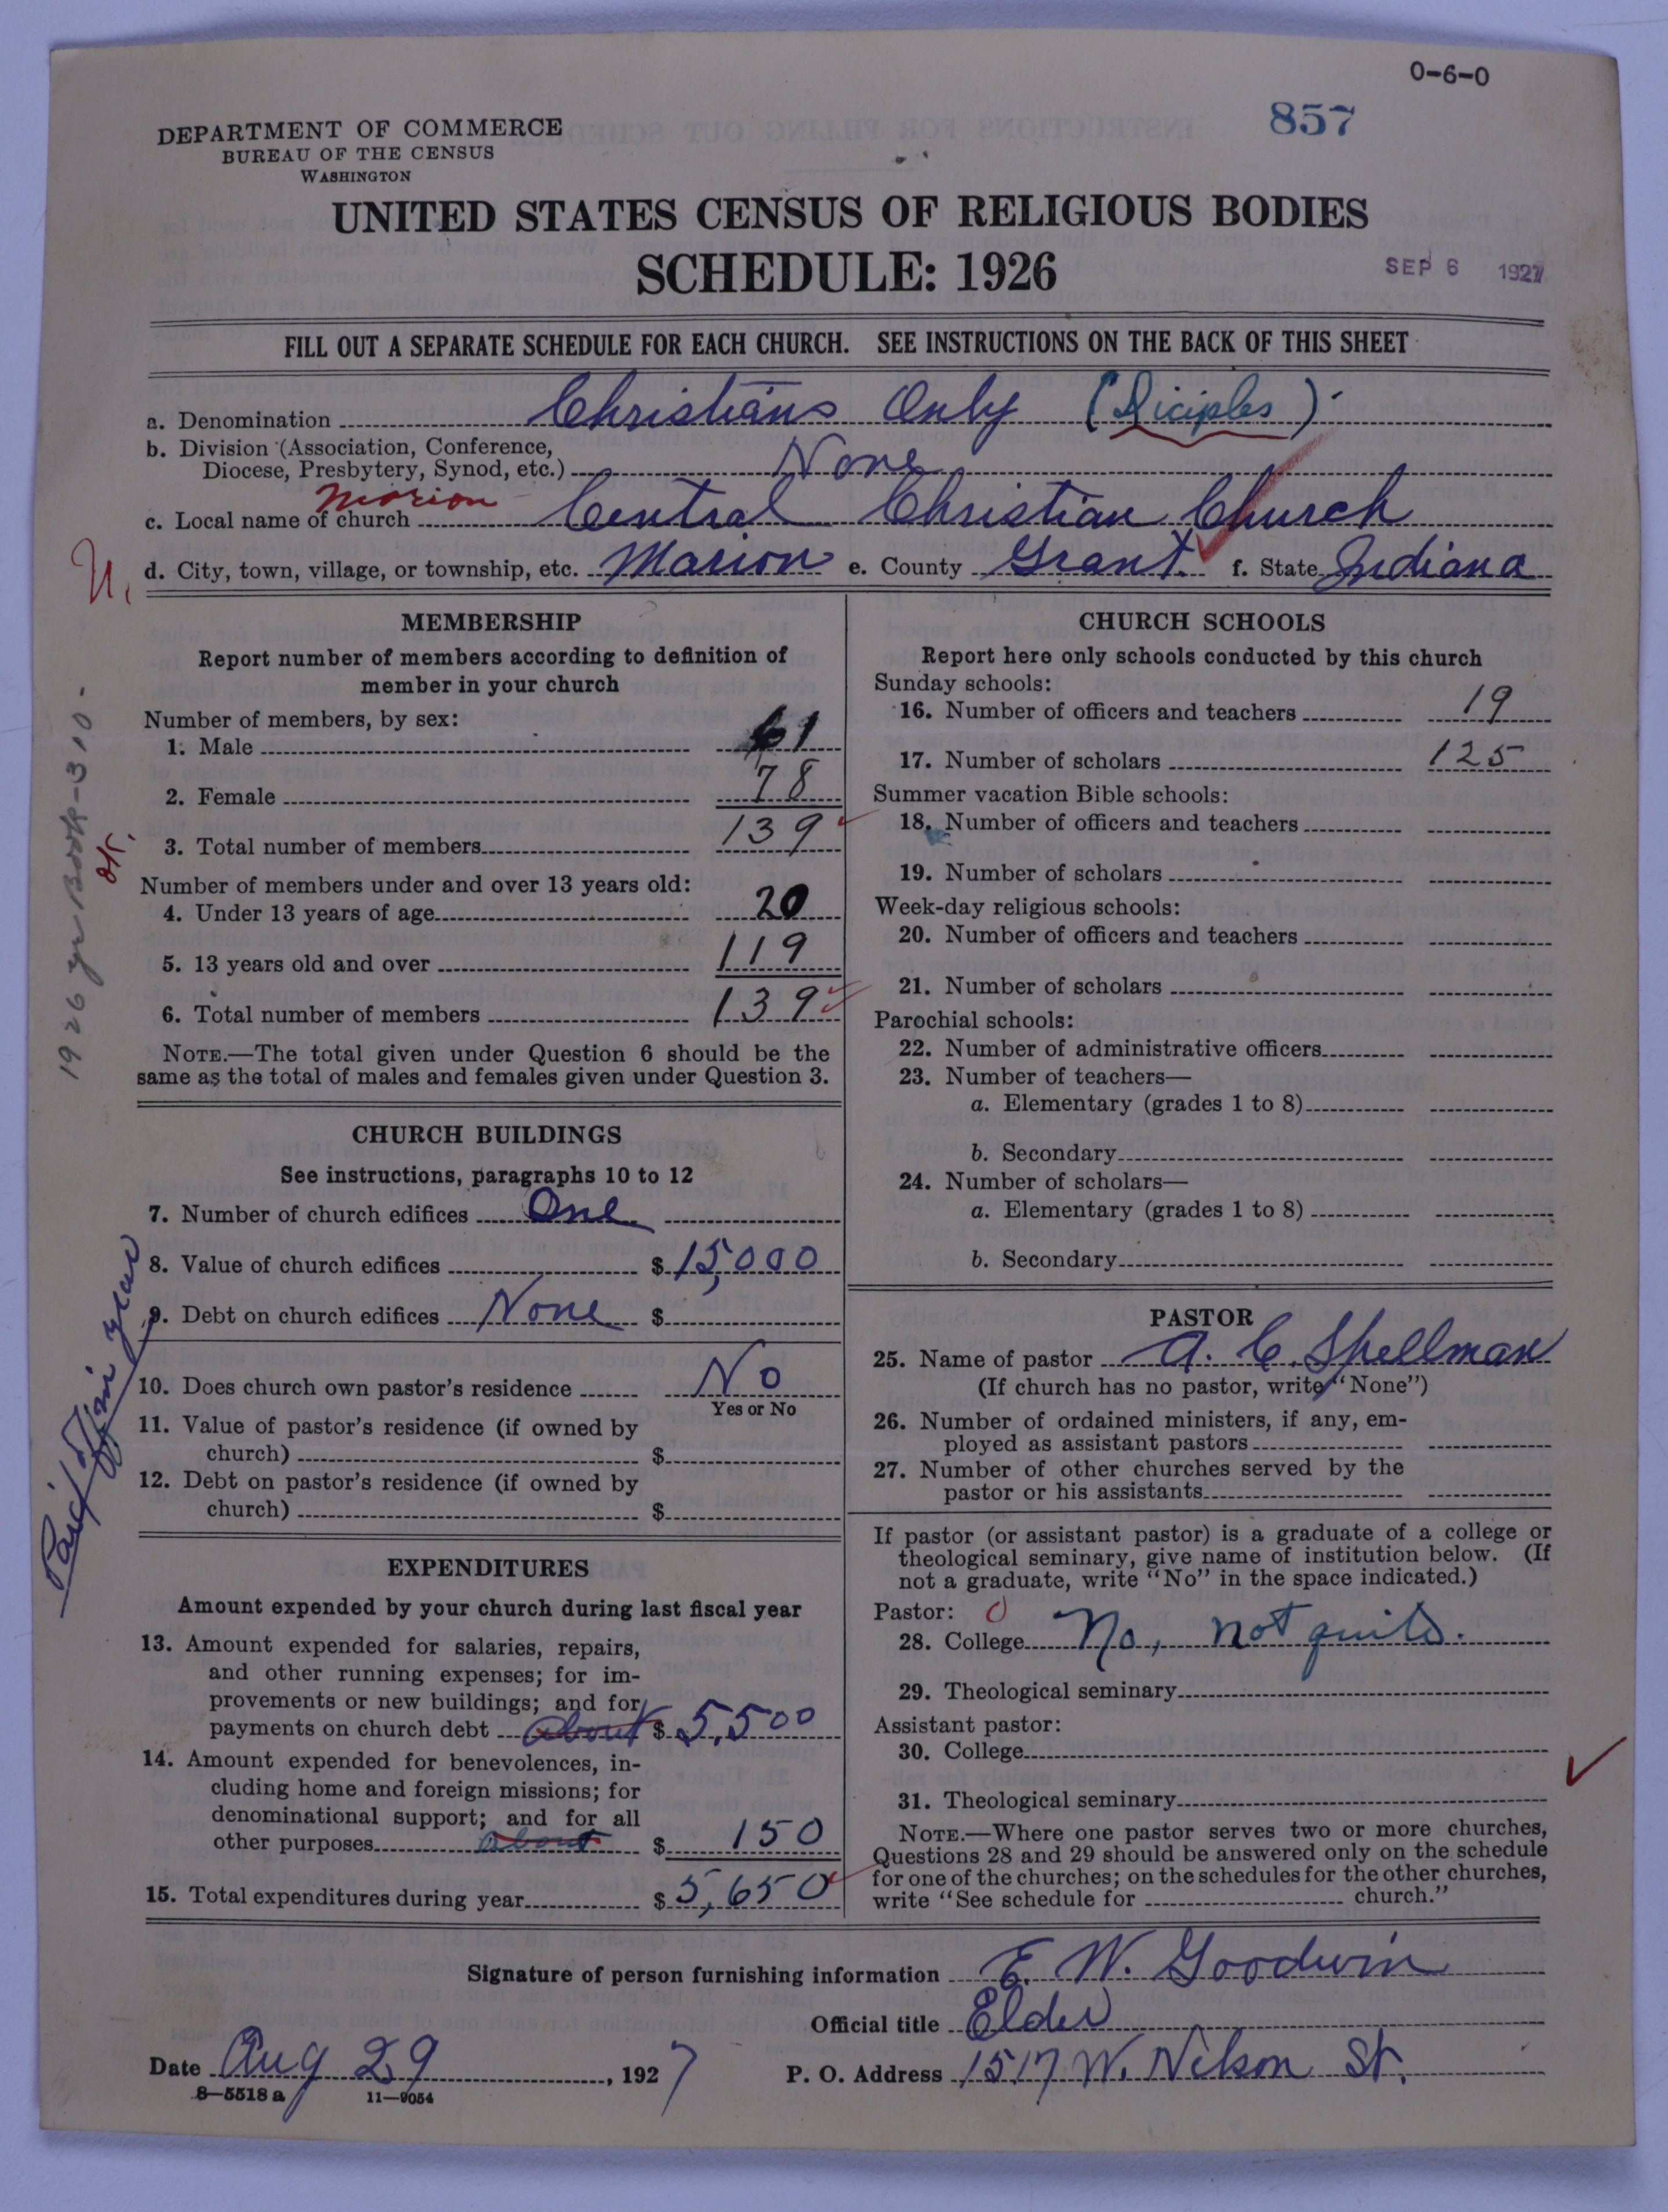 0-6-0
857
DEPARTMENT OF COMMERCE
BUREAU OF THE CENSUS
WASHINGTON
UNITED STATES CENSUS OF RELIGIOUS BODIES
SCHEDULE: 1926
SEP 6 1927
FILL OUT A SEPARATE SCHEDULE FOR EACH CHURCH. SEE INSTRUCTIONS ON THE BACK OF THIS SHEET
a. Denomination Christians Only (Diciples)
b. Division (Association, Conference,
Diocese, Presbytery, Synod, etc.) None
Marion
c. Local name of church Central Christian Church
d. City, town, village, or township, etc. Marion e. County Grant f. State Indiana
U.
MEMBERSHIP
Report number of members according to definition of
member in your church
Number of members, by sex:
1. Male 61
2. Female 78
3. Total number of members 139
Number of members under and over 13 years old:
4. Under 13 years of age 20
5. 13 years old and over 119
6. Total number of members 139
NOTE.—The total given under Question 6 should be the
same as the total of males and females given under Question 3.
1926 yr Book-310-
OK.
CHURCH BUILDINGS
See instructions, paragraphs 10 to 12
7. Number of church edifices One
8. Value of church edifices $ 15,000
9. Debt on church edifices None $
10. Does church own pastor's residence No
Yes or No
11. Value of pastor's residence (if owned by
church) $
12. Debt on pastor's residence (if owned by
church) $
Paid off in year
EXPENDITURES
Amount expended by your church during last fiscal year
13. Amount expended for salaries, repairs,
and other running expenses; for im-
provements or new buildings; and for
payments on church debt about $ 5,500
14. Amount expended for benevolences, in-
cluding home and foreign missions; for
denominational support; and for all
other purposes about $ 150
15. Total expenditures during year $ 5,650
CHURCH SCHOOLS
Report here only schools conducted by this church
Sunday schools:
16. Number of officers and teachers 19
17. Number of scholars 125
Summer vacation Bible schools:
18. Number of officers and teachers
19. Number of scholars
Week-day religious schools:
20. Number of officers and teachers
21. Number of scholars
Parochial schools:
22. Number of administrative officers
23. Number of teachers—
a. Elementary (grades 1 to 8)
b. Secondary
24. Number of scholars—
a. Elementary (grades 1 to 8)
b. Secondary
PASTOR
25. Name of pastor A. C. Shellman
(If church has no pastor, write "None")
26. Number of ordained ministers, if any, em-
ployed as assistant pastors
27. Number of other churches served by the
pastor or his assistants
If pastor (or assistant pastor) is a graduate of a college or
theological seminary, give name of institution below. (If
not a graduate, write "No" in the space indicated.)
Pastor: 0
28. College No, not quite.
29. Theological seminary
Assistant pastor:
30. College
31. Theological seminary
NOTE.—Where one pastor serves two or more churches,
Questions 28 and 29 should be answered only on the schedule
for one of the churches; on the schedules for the other churches,
write "See schedule for church."
Signature of person furnishing information E. W. Goodwin
Official title Elder
Date Aug 29, 1927 P. O. Address 1517 W. Nelson St.
8—5518 a 11—9054